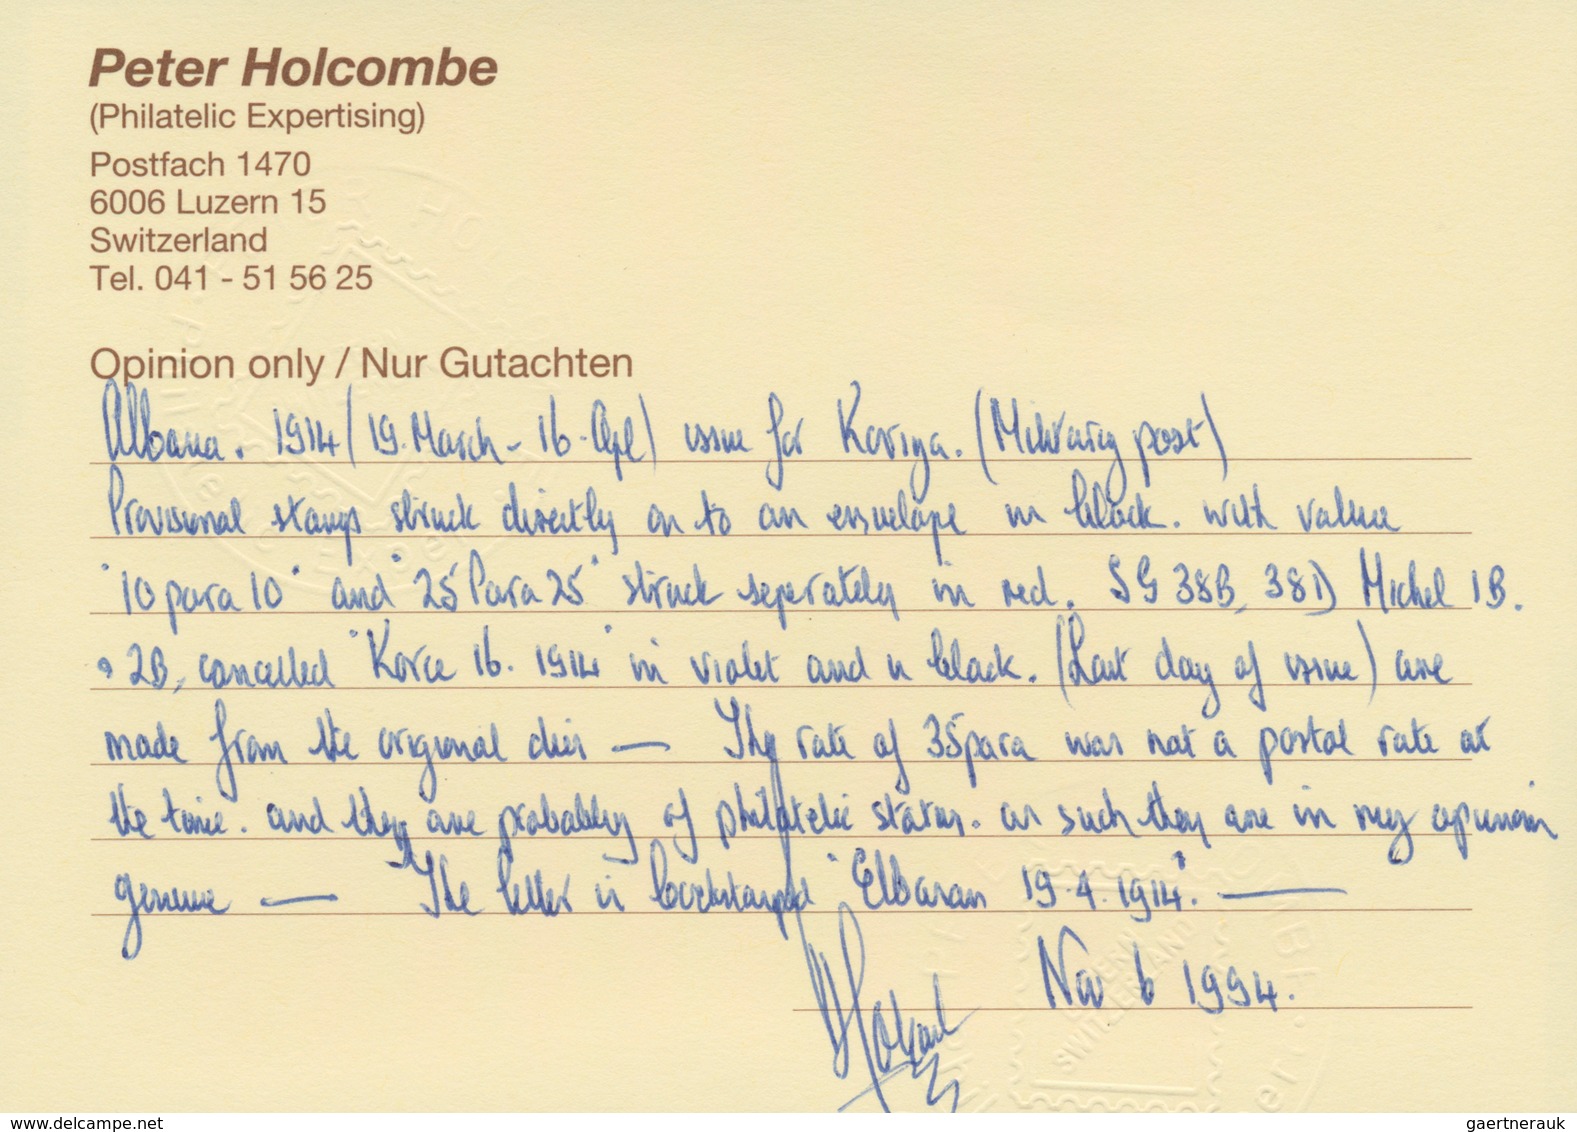 Peter Holcombe
(Philatelic Expertising)
Postfach 1470
6006 Luzern 15
Switzerland
Tel. 041 - 51 56 25
Opinion only / Nur Gutachten
Albania. 1914 (19. March - 16. Apl) issue for Koriya. (Military post)
Provisional stamps struck directly on to an envelope in black. with value
"10 para 10" and "25 Para 25" struck seperately in red. SG 38B, 38D Michel 1B.
2B, cancelled "Korce 16. 1914" in violet and in black. (Last day of issue) are
made from the original dies — The rate of 35 para was not a postal rate at
the time. and they are probably of philatelic status. as such they are in my opinion
genuine — The letter is backstamped "Elbasan 19.4.1914." —
Nov 6 1994.
SWITZERLAND
www.delcampe.net
gaertnerauk